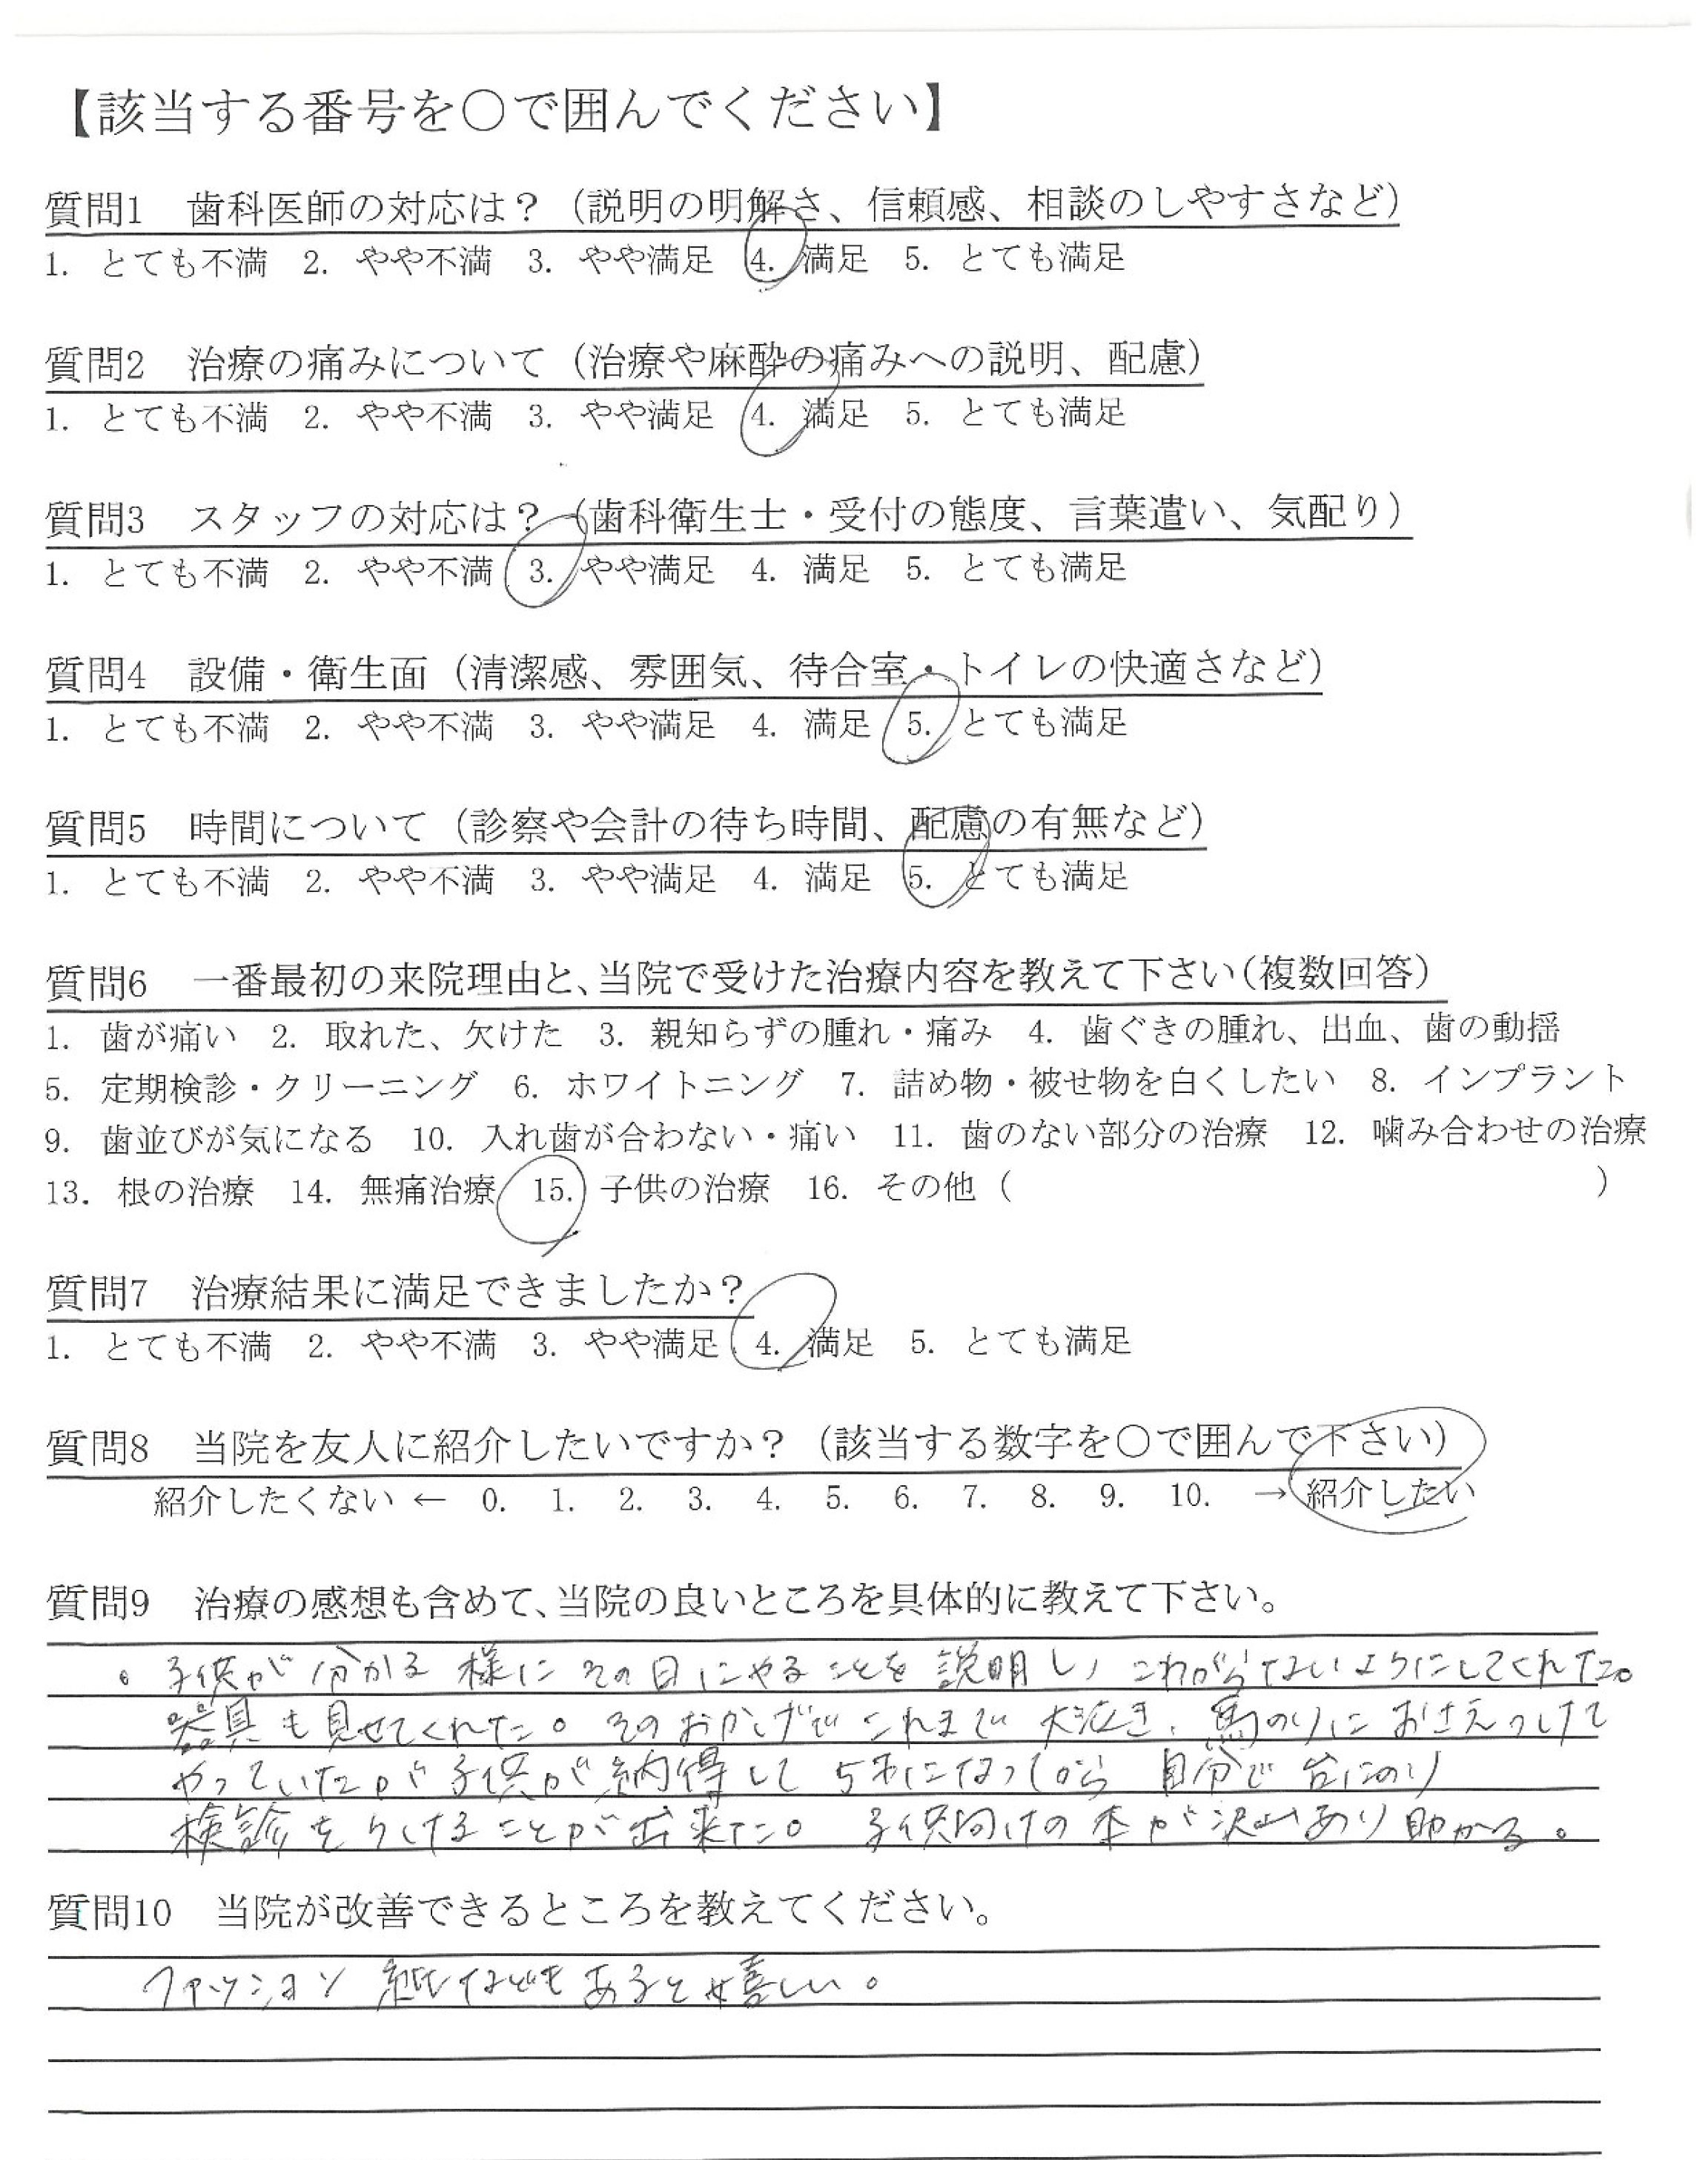 【該当する番号を○で囲んでください】
質問1　歯科医師の対応は？（説明の明解さ、信頼感、相談のしやすさなど）
1. とても不満　2. やや不満　3. やや満足　4. 満足　5. とても満足
質問2　治療の痛みについて（治療や麻酔の痛みへの説明、配慮）
1. とても不満　2. やや不満　3. やや満足　4. 満足　5. とても満足
質問3　スタッフの対応は？（歯科衛生士・受付の態度、言葉遣い、気配り）
1. とても不満　2. やや不満　3. やや満足　4. 満足　5. とても満足
質問4　設備・衛生面（清潔感、雰囲気、待合室・トイレの快適さなど）
1. とても不満　2. やや不満　3. やや満足　4. 満足　5. とても満足
質問5　時間について（診察や会計の待ち時間、配慮の有無など）
1. とても不満　2. やや不満　3. やや満足　4. 満足　5. とても満足
質問6　一番最初の来院理由と、当院で受けた治療内容を教えて下さい（複数回答）
1. 歯が痛い　2. 取れた、欠けた　3. 親知らずの腫れ・痛み　4. 歯ぐきの腫れ、出血、歯の動揺
5. 定期検診・クリーニング　6. ホワイトニング　7. 詰め物・被せ物を白くしたい　8. インプラント
9. 歯並びが気になる　10. 入れ歯が合わない・痛い　11. 歯のない部分の治療　12. 噛み合わせの治療
13. 根の治療　14. 無痛治療　15. 子供の治療　16. その他（　　　　　　）
質問7　治療結果に満足できましたか？
1. とても不満　2. やや不満　3. やや満足　4. 満足　5. とても満足
質問8　当院を友人に紹介したいですか？（該当する数字を○で囲んで下さい）
紹介したくない ← 0. 1. 2. 3. 4. 5. 6. 7. 8. 9. 10. → 紹介したい
質問9　治療の感想も含めて、当院の良いところを具体的に教えて下さい。
。子供が分かる様にその日にやることを説明し、これがらないようにしてくれた。
器具も見せてくれた。そのおかげでこれまで大泣き、馬のりにおさえつけて
やっていたが子供が納得して5才になってから自分で台にのり
検診をうけることが出来た。子供向けの本が沢山あり助かる。
質問10　当院が改善できるところを教えてください。
ファッション紙などもあると嬉しい。